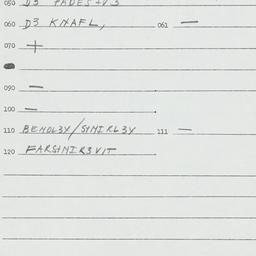 050 D3 FADES+V3
060 D3 KNAFL, 061 —
070 +
090 —
100 —
110 BENDL3Y/SHMIRL3Y 111 —
120 FARSHMIR3VIT